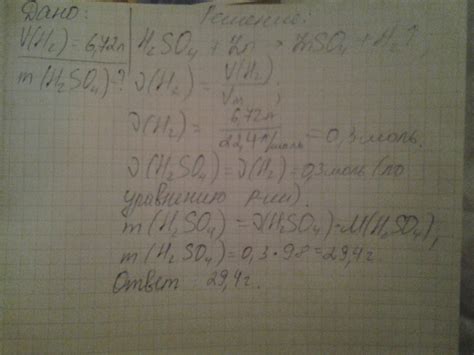 Дано:
Решение:
V(H₂) = 6,72л
H₂SO₄ + Zn → ZnSO₄ + H₂↑
m(H₂SO₄)-?
ν(H₂) = V(H₂)/Vm;
ν(H₂) = 6,72л/22,4л/моль = 0,3моль.
ν(H₂SO₄) = ν(H₂) = 0,3моль (по
уравнению р-ии).
m(H₂SO₄) = ν(H₂SO₄)·M(H₂SO₄);
m(H₂SO₄) = 0,3·98 = 29,4г.
Ответ: 29,4г.